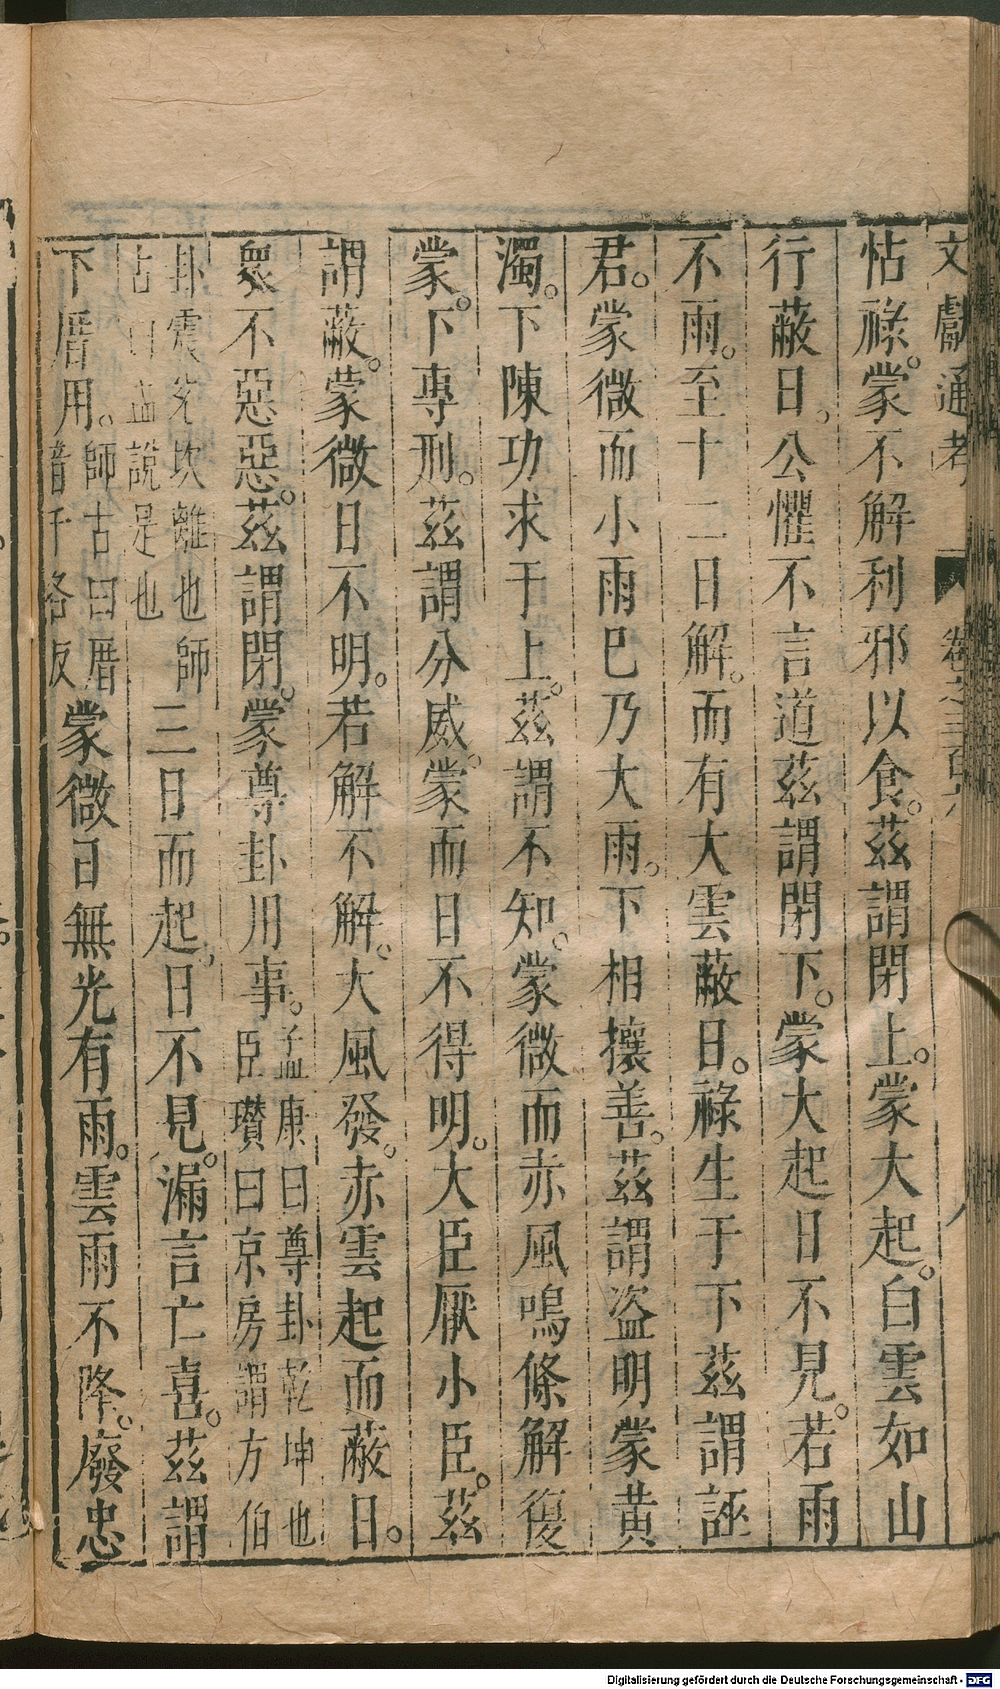 文獻通考 卷之三百 八
怙祿。蒙不解利邪以食。茲謂閉上。蒙大起。白雲如山
行蔽日。公懼不言道茲謂閉下。蒙大起日不見。若雨
不雨。至十二日解。而有大雲蔽日。祿生于下茲謂誣
君。蒙微而小雨已乃大雨。下相攘善。茲謂盗明蒙黄
濁。下陳功求于上。茲謂不知。蒙微而赤風鳴條解復
蒙。下專刑。茲謂分威。蒙而日不得明。大臣厭小臣。茲
謂蔽。蒙微日不明。若解不解。大風發。赤雲起而蔽日。
衆不惡惡。茲謂閉。蒙尊卦用事。孟康曰尊卦乾坤也臣瓚曰京房謂方伯
卦震兌坎離也師古曰孟說是也三日而起，日不見。漏言亡喜。茲謂
下厝用。師古曰厝音千各反蒙微日無光有雨。雲雨不降。廢忠
Digitalisierung gefördert durch die Deutsche Forschungsgemeinschaft - DFG